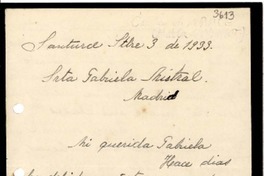 3613
Santurce Stre 3 de 1933.
Srta Gabriela Mistral.
Madrid
Mi querida Gabriela
Hace dias